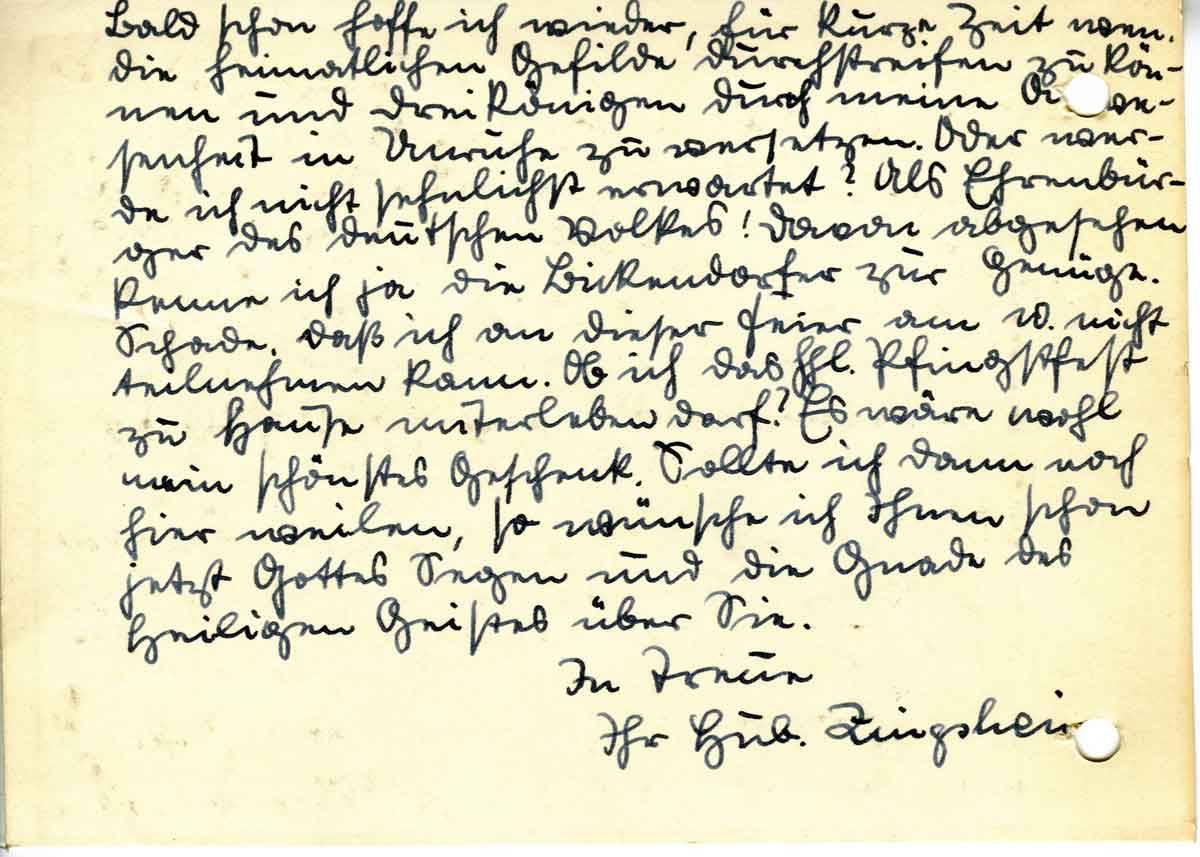 Bald schon hoffe ich wieder, für kurze Zeit wen.
die heimatlichen Gefilde durchstreifen zu kön-
nen und Dreikönigen durch meine An we-
senheit in Unruhe zu versetzen. Oder wer-
de ich nicht sehnlichst erwartet? Als Ehrenbür-
ger des deutschen Volkes! Davon abgesehen
kenne ich ja die Bickendorfer zur Genüge.
Schade, daß ich an dieser Feier am 10. nicht
teilnehmen kann. Ob ich das hhl. Pfingstfest
zu Hause miterleben darf? Es wäre wohl
mein schönstes Geschenk. Sollte ich dann noch
hier weilen, so wünsche ich Ihnen schon
jetzt Gottes Segen und die Gnade des
Heiligen Geistes über Sie.
In Treue
Ihr Hub. Zingsheim